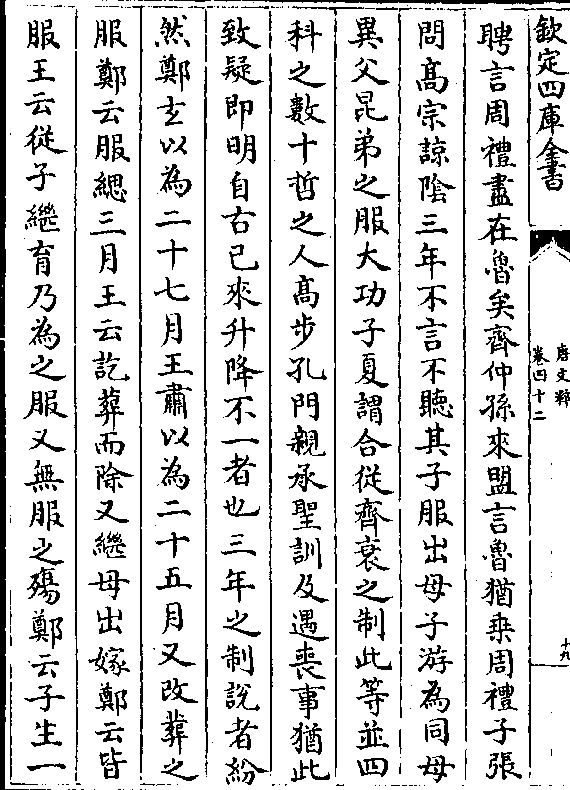 欽定四庫全書
唐文粹
卷四十二
十九
聘言周禮盡在魯矣齊仲孫來盟言魯猶乗周禮子張
問髙宗諒隂三年不言不聽其子服出母子游為同母
異父昆弟之服大功子夏謂合從齊衰之制此等並四
科之數十哲之人髙步孔門親承聖訓及遇喪事猶此
致疑即明自古已來升降不一者也三年之制說者紛
然鄭玄以為二十七月王肅以為二十五月又改葬之
服鄭云服緦三月王云訖葬而除又繼母出嫁鄭云皆
服王云從子繼育乃為之服又無服之殤鄭云子生一